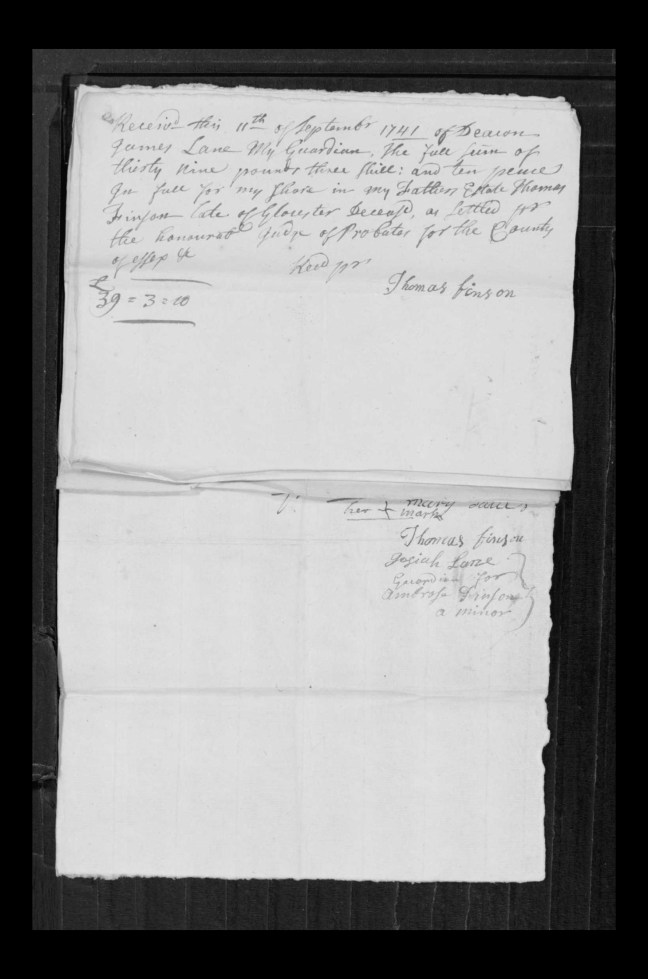 Receivd this 11th of Septembr 1741 of Deacon
James Lane My Guardian, the full sum of
thirty Nine pounds three shill: and ten pence
In full for my Share in my Fathers Estate Thomas
Finson late of Glocester Deceasd, as Settled pr
the honourabl Judge of Probates for the County
of Essex &c
Recd pr
Thomas finson
£
39 = 3 = 10
her + mary Lane's
mark
Thomas finson
Josiah Lane
Guardian for
Ambrose Finson
a minor